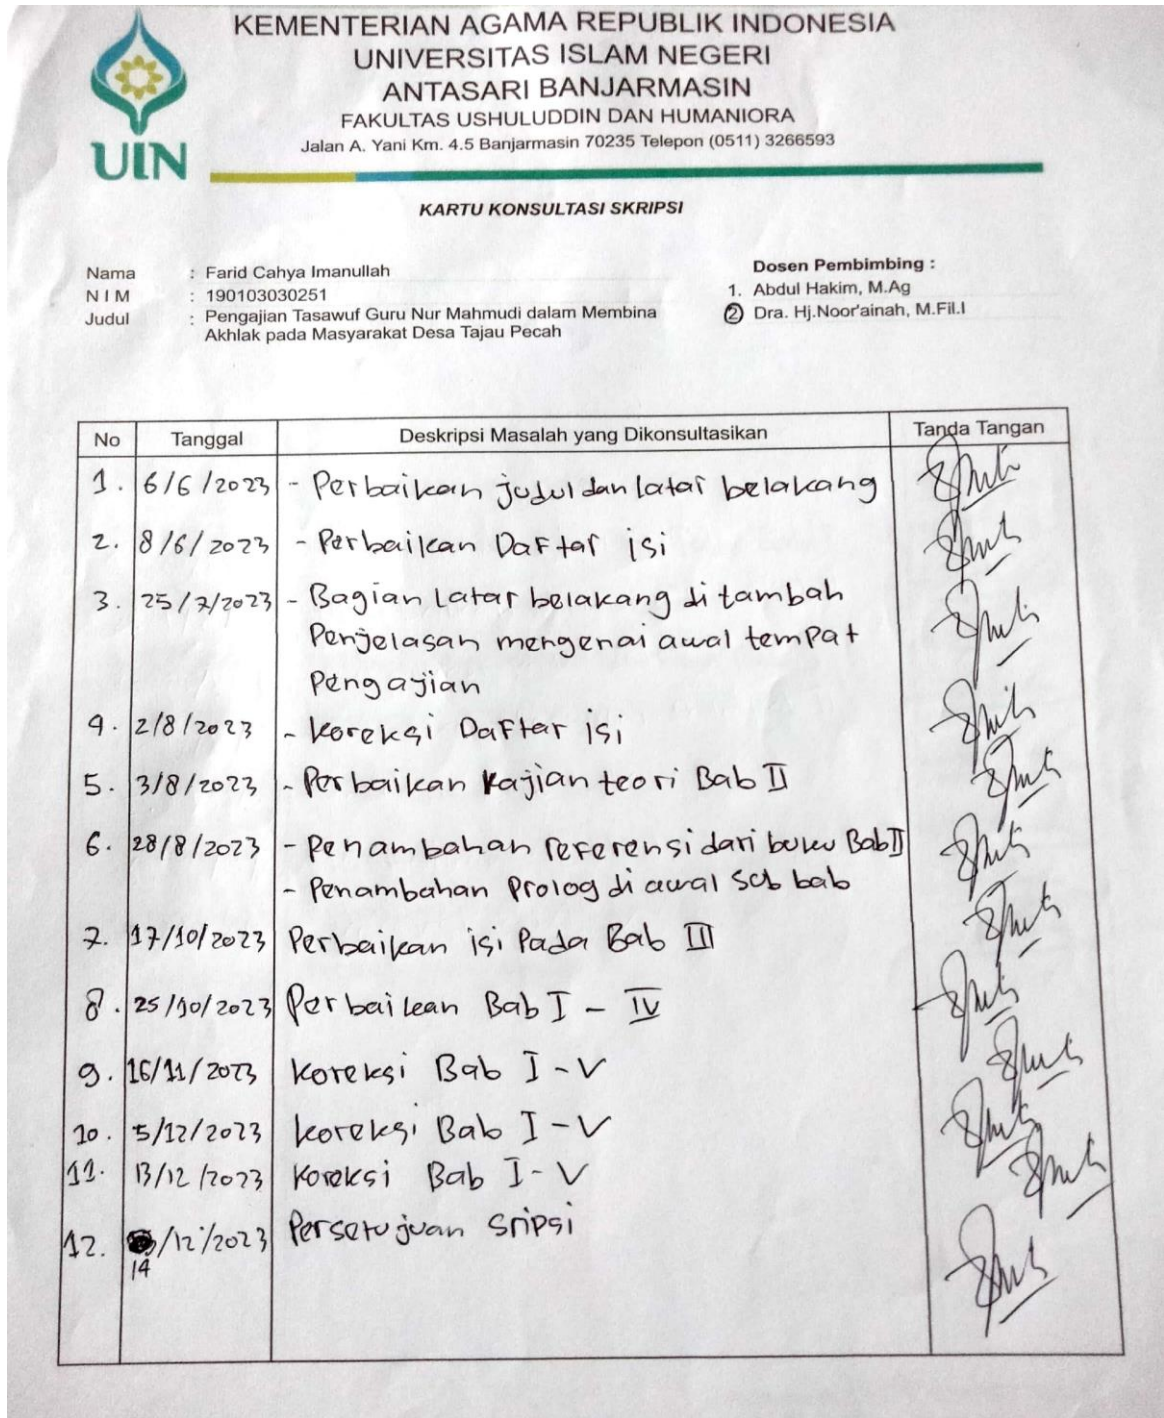 UIN
KEMENTERIAN AGAMA REPUBLIK INDONESIA
UNIVERSITAS ISLAM NEGERI
ANTASARI BANJARMASIN
FAKULTAS USHULUDDIN DAN HUMANIORA
Jalan A. Yani Km. 4.5 Banjarmasin 70235 Telepon (0511) 3266593
KARTU KONSULTASI SKRIPSI
Nama : Farid Cahya Imanullah
N I M : 190103030251
Judul : Pengajian Tasawuf Guru Nur Mahmudi dalam Membina
Akhlak pada Masyarakat Desa Tajau Pecah
Dosen Pembimbing :
1. Abdul Hakim, M.Ag
2 Dra. Hj.Noor'ainah, M.Fil.I
No Tanggal Deskripsi Masalah yang Dikonsultasikan Tanda Tangan
1. 6/6/2023 - Perbaikan judul dan latar belakang
2. 8/6/2023 - Perbaikan Daftar isi
3. 25/7/2023 - Bagian Latar belakang di tambah
Penjelasan mengenai awal tempat
Pengajian
4. 2/8/2023 - Koreksi Daftar isi
5. 3/8/2023 - Perbaikan Kajian teori Bab II
6. 28/8/2023 - Penambahan referensi dari buku Bab II
- Penambahan Prolog di awal sub bab
7. 17/10/2023 Perbaikan isi Pada Bab III
8. 25/10/2023 Perbaikan Bab I - IV
9. 16/11/2023 Koreksi Bab I - V
10. 5/12/2023 Koreksi Bab I - V
11. 13/12/2023 Koreksi Bab I - V
12. /12/2023 Persetujuan Sripsi
14